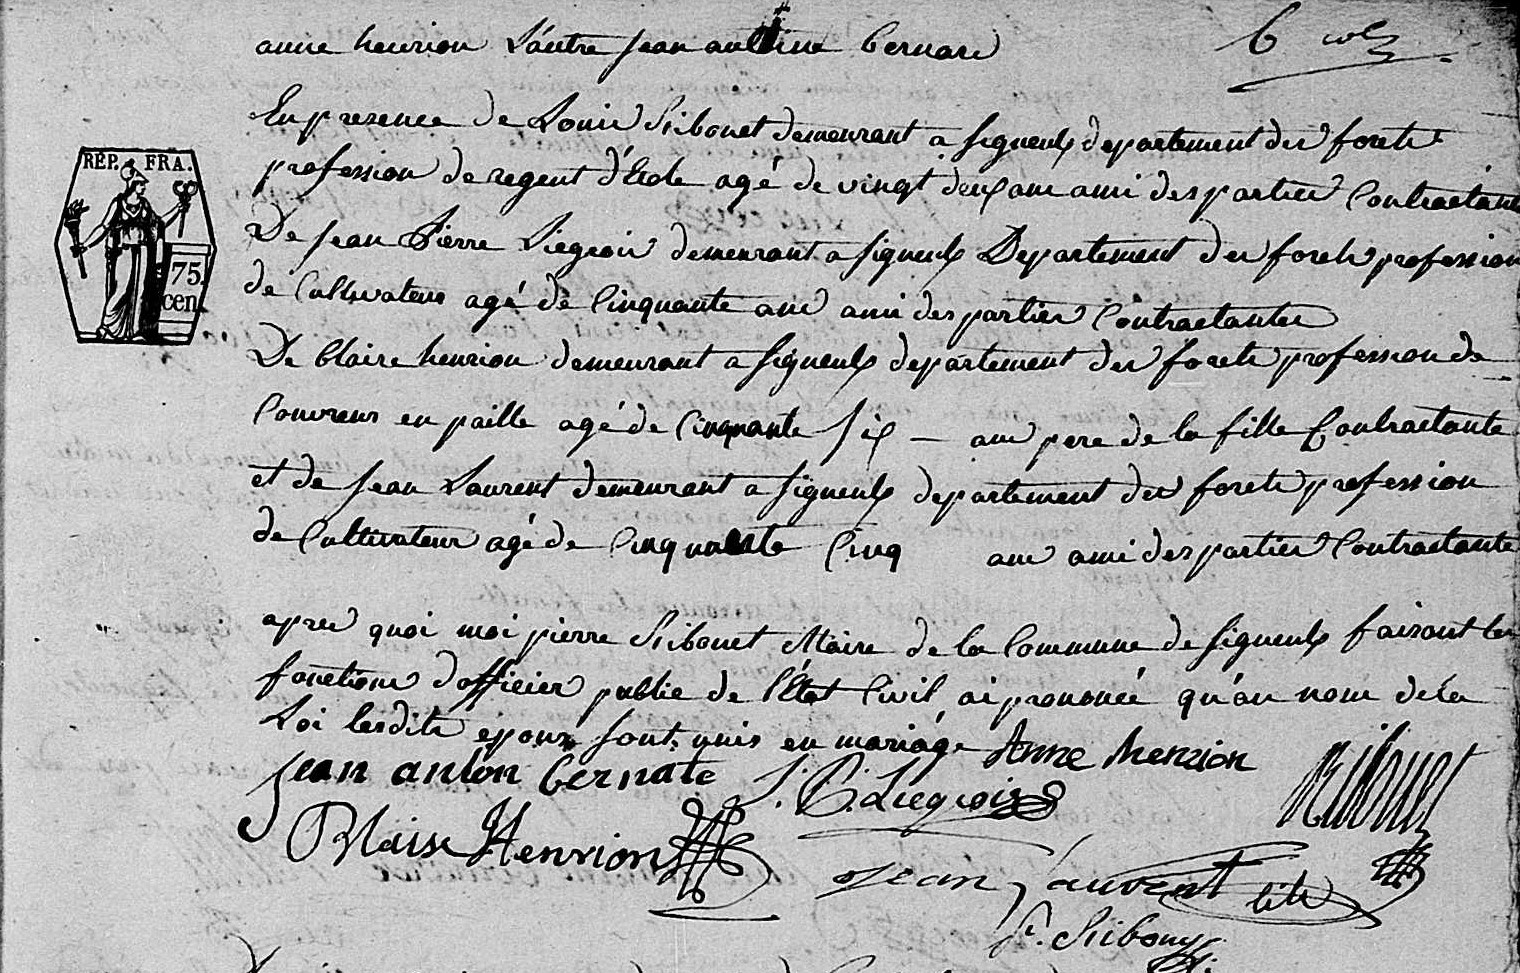 anne henrion L'autre jean antoine bernard
6
En presence de Louis Ribonet demeurant a signeulx departement des forets
REP. FRA.
profession de regent d'Ecole agé de vingt deux ans ami des parties Contractante
De jean Pierre Liegeois demeurant a signeulx Departement des forets profession
75.
cen.
de Cultivateur agé de Cinquante ans ami des parties Contractantes
De blaise henrion demeurant a signeulx departement des forets profession de
Couvreur en paille agé de Cinquante six — ans pere de la fille Contractante
et de jean Laurent demeurant a signeulx departement des forets profession
de Cultivateur agé de Cinquante Cinq ans ami des parties Contractante
apres quoi moi pierre Ribonet Maire de la Commune de signeulx faisant les
fonctions d'officier public de l'État Civil, ai prononcé qu'au nom de la
Loi lesdits epoux sont unis en mariage Anne henrion
jean anton bernate J. P. Liegeois Ribonet
Blaise Henrion
jean Lauvent